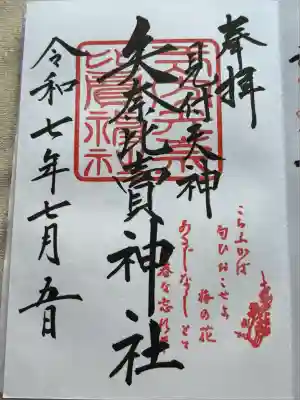 奉拝
見付天神
矢奈比賣神社
令和七年七月五日
こちふかば
匂ひおこせよ
梅の花
あるじなしとて
春な忘れそ